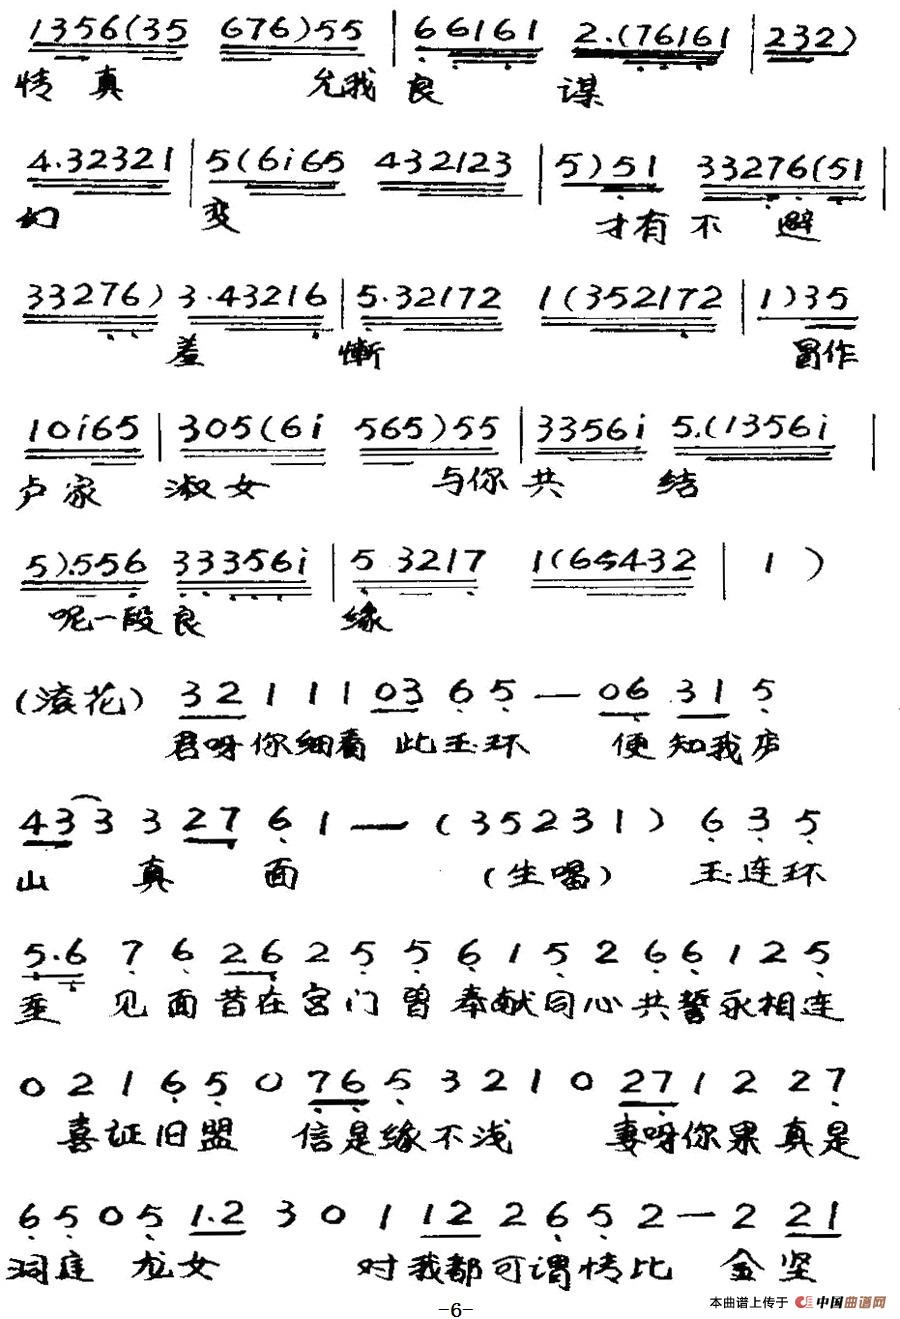 1356(35 676)55 | 66161 2.(76161 | 232)
情真 允我良 谋
4.32321 | 5(6i65 432123 | 5)51 33276(51 |
幻 变 才有不 避
33276) 3.43216 | 5.32172 1(352172 | 1)35
羞 惭 冒作
10i65 | 305(6i 565)55 | 3356i 5.(1356i |
卢家 淑女 与你共 结
5).556 33356i | 5 3217 1(65432 | 1 )
呢一段良 缘
(滚花) 32 1 1 1 03 6 5 — 06 31 5
君呀你细看 此玉环 便知我庐
43 3 3 27 6 1 — (35231) 6 3 5
山 真 面 (生唱) 玉连环
5.6 7 6 26 2 5 5 6 1 5 2 6 6 1 2 5
重 见面昔在宫门曾奉献同心共誓永相连
0 2 1 6 5 0 76 5 3 2 1 0 27 1 2 2 7
喜证旧盟 信是缘不浅 妻呀你果真是
6 5 0 5 1.2 3 0 1 12 2 6 5 2 — 2 21
洞庭 龙女 对我都可谓情比 金坚
-6-
本曲谱上传于 中国曲谱网